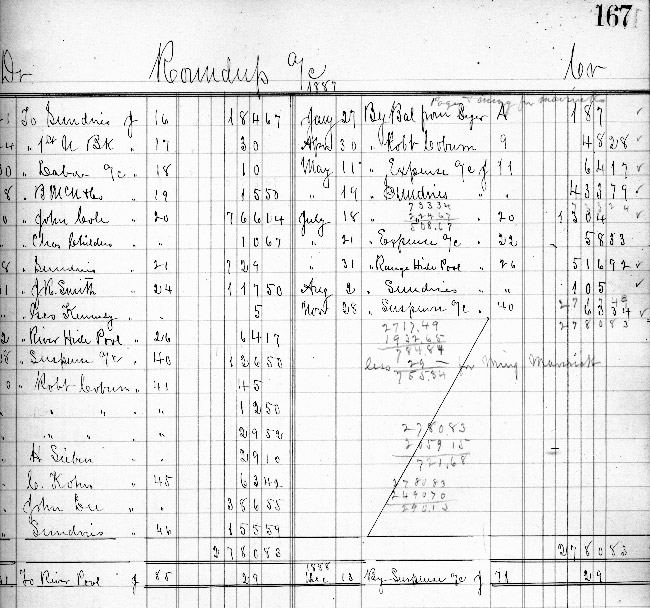 167
Dr Roundup a/c 1887 Cr
1 To Sundries J 16 184 67 Jany 27 By Bal from Leger A 187 ✓
4 " 1st N BK " 17 30 Aprl 30 " Robt Coburn 9 48 28 ✓
0 " Labor a/c " 18 10 May 11 " Expense a/c J 11 64 17 ✓
8 " " 19 15 50 " 19 " Sundries " " 433 79 ✓
0 " John Cole " 20 766 14 July 18 " " 20 1304 ✓
" Chas Childers " " 10 67 " 21 " Expense a/c " 22 58 53
8 " Sundries " 21 729 " 31 " Range Hide Pool " 26 516 72 ✓
1 " J.R. Smith " 24 117 50 Aug 2 " Sundries " " 105 ✓
" Geo Kennedy " " 5 Nov 28 " Suspense a/c " 40 ✓
2 " River Hide Pool " 26 64 17 2780 83
8 " Suspense a/c " 40 126 50
0 " Robt Coburn " 41 45
" " " 12 50
" " " 29 52
" H Sieben " " 29 10
" C. Kohn " 45 63 42
" John " " 386 55
" Sundries " 46 155 59
2717.49
1932.65
784.84
less 29 for Ming Marriott
755.84
2780 83
2059 15
721.68
2780 83
2490 70
290 13
2780 83 2780 83
To River Pool J 85 29 1888 Dec 13 By Suspense a/c J 71 29